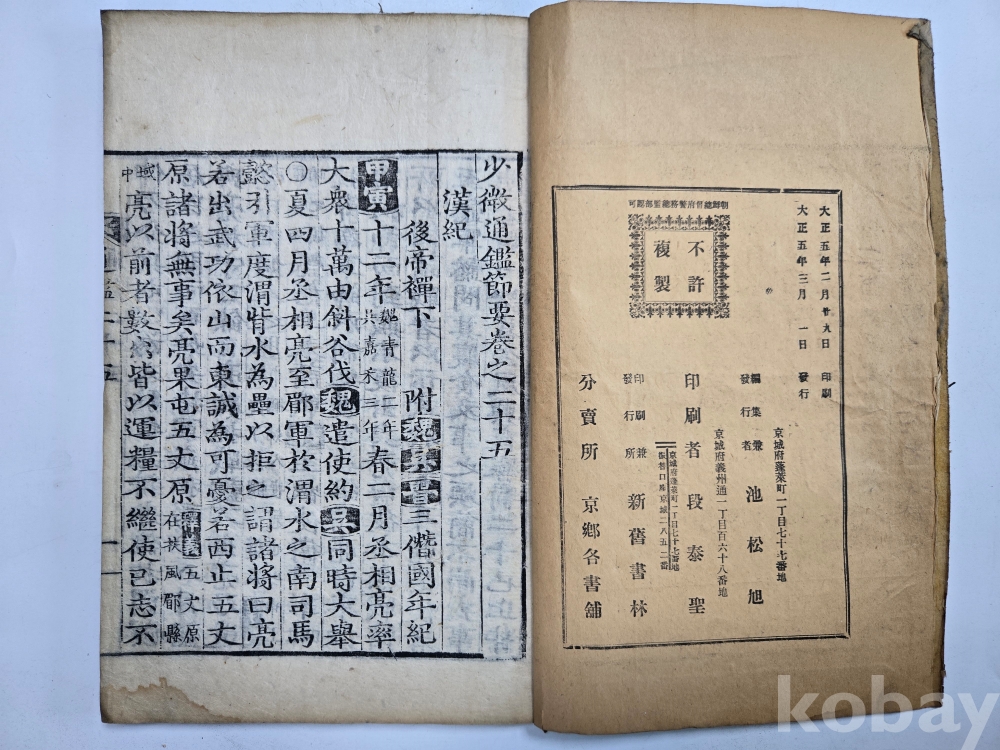 朝鮮總督府警務總監部認可
不許
複製
大正五年二月廿九日 印刷
大正五年三月 一日 發行
京城府蓬萊町一丁目七十七番地
編集兼發行者 池松旭
京城府義州通一丁目百六十八番地
印刷者 段泰聖
京城府蓬萊町一丁目七十七番地
振替口座京城二八五二番
印刷兼發行所 新舊書林
分賣所 京鄉各書舖
少微通鑑節要卷之二十五
漢紀
後帝禪下 附魏僭國年紀
甲寅十二年魏青龍二年吳嘉禾三年春二月丞相亮率
大衆十萬由斜谷伐魏遣使約吳同時大舉
○夏四月丞相亮至郿軍於渭水之南司馬
懿引軍度渭背水為壘以拒之謂諸將曰亮
若出武功依山而東誠為可憂若西止五丈
原諸將無事矣亮果屯五丈原釋義五丈原在扶風郿縣
域中亮以前者數出皆以運糧不繼使已志不
kobay